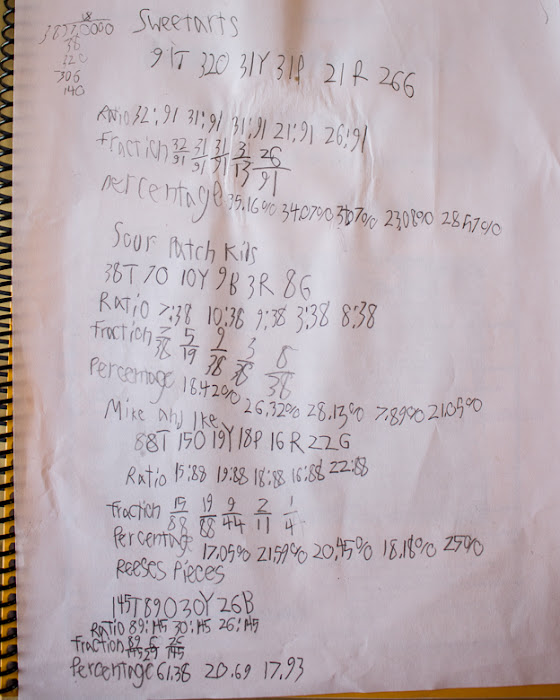 Sweetarts
91T 32O 31Y 31P 21R 26G
Ratio 32:91 31:91 31:91 21:91 26:91
Fraction 32/91 31/91 31/91 3/13 26/91
Percentage 35.16% 34.07% 34.07% 23.08% 28.57%
Sour Patch Kids
38T 7O 10Y 9B 3R 8G
Ratio 7:38 10:38 9:38 3:38 8:38
Fraction 7/38 5/19 9/38 3/38 8/38
Percentage 18.42% 26.32% 28.13% 7.89% 21.05%
Mike and Ike
88T 15O 19Y 18P 16R 22G
Ratio 15:88 19:88 18:88 16:88 22:88
Fraction 15/88 19/88 9/44 2/11 1/4
Percentage 17.05% 21.59% 20.45% 18.18% 25%
Reeses Pieces
145T 89O 30Y 26B
Ratio 89:145 30:145 26:145
Fraction 89/145 6/29 26/145
Percentage 61.38 20.69 17.93